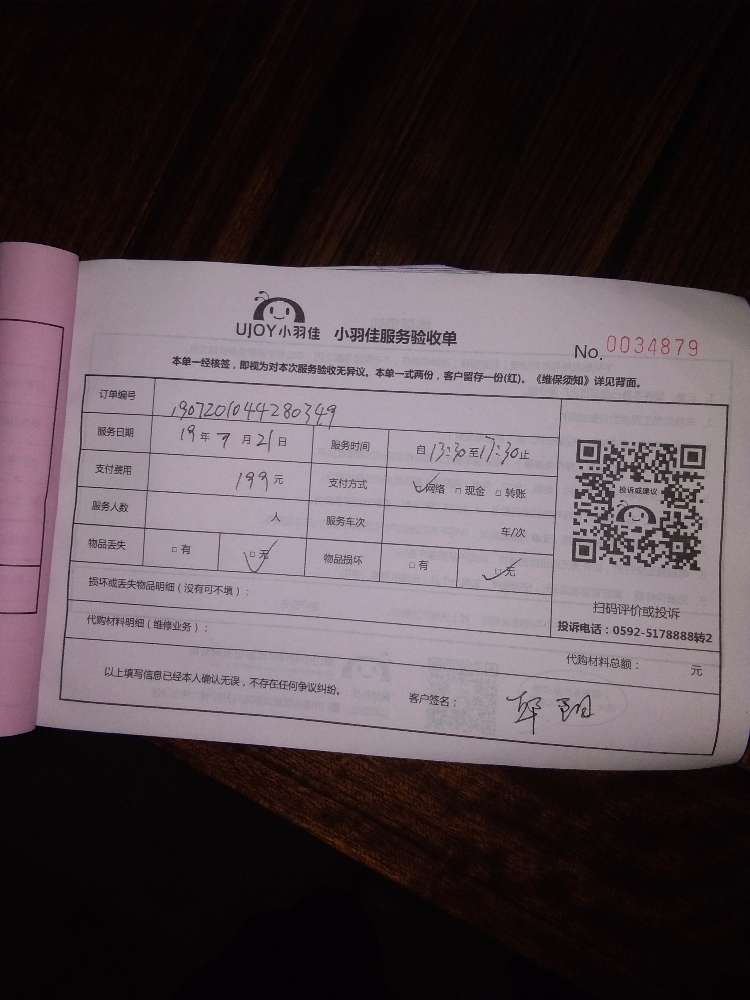 UJOY小羽佳 小羽佳服务验收单
No. 0034879
本单一经核签，即视为对本次服务验收无异议。本单一式两份，客户留存一份(红)。《维保须知》详见背面。
订单编号 1907201044280349
服务日期 19年7月21日 服务时间 自13:30至17:30止
支付费用 199元 支付方式 网络 □现金 □转账
服务人数 人 服务车次 车/次
物品丢失 □有 □无 物品损坏 □有 □无
损坏或丢失物品明细（没有可不填）：
代购材料明细（维修业务）：
代购材料总额： 元
以上填写信息已经本人确认无误，不存在任何争议纠纷。
客户签名：
投诉或建议
扫码评价或投诉
投诉电话：0592-5178888转2